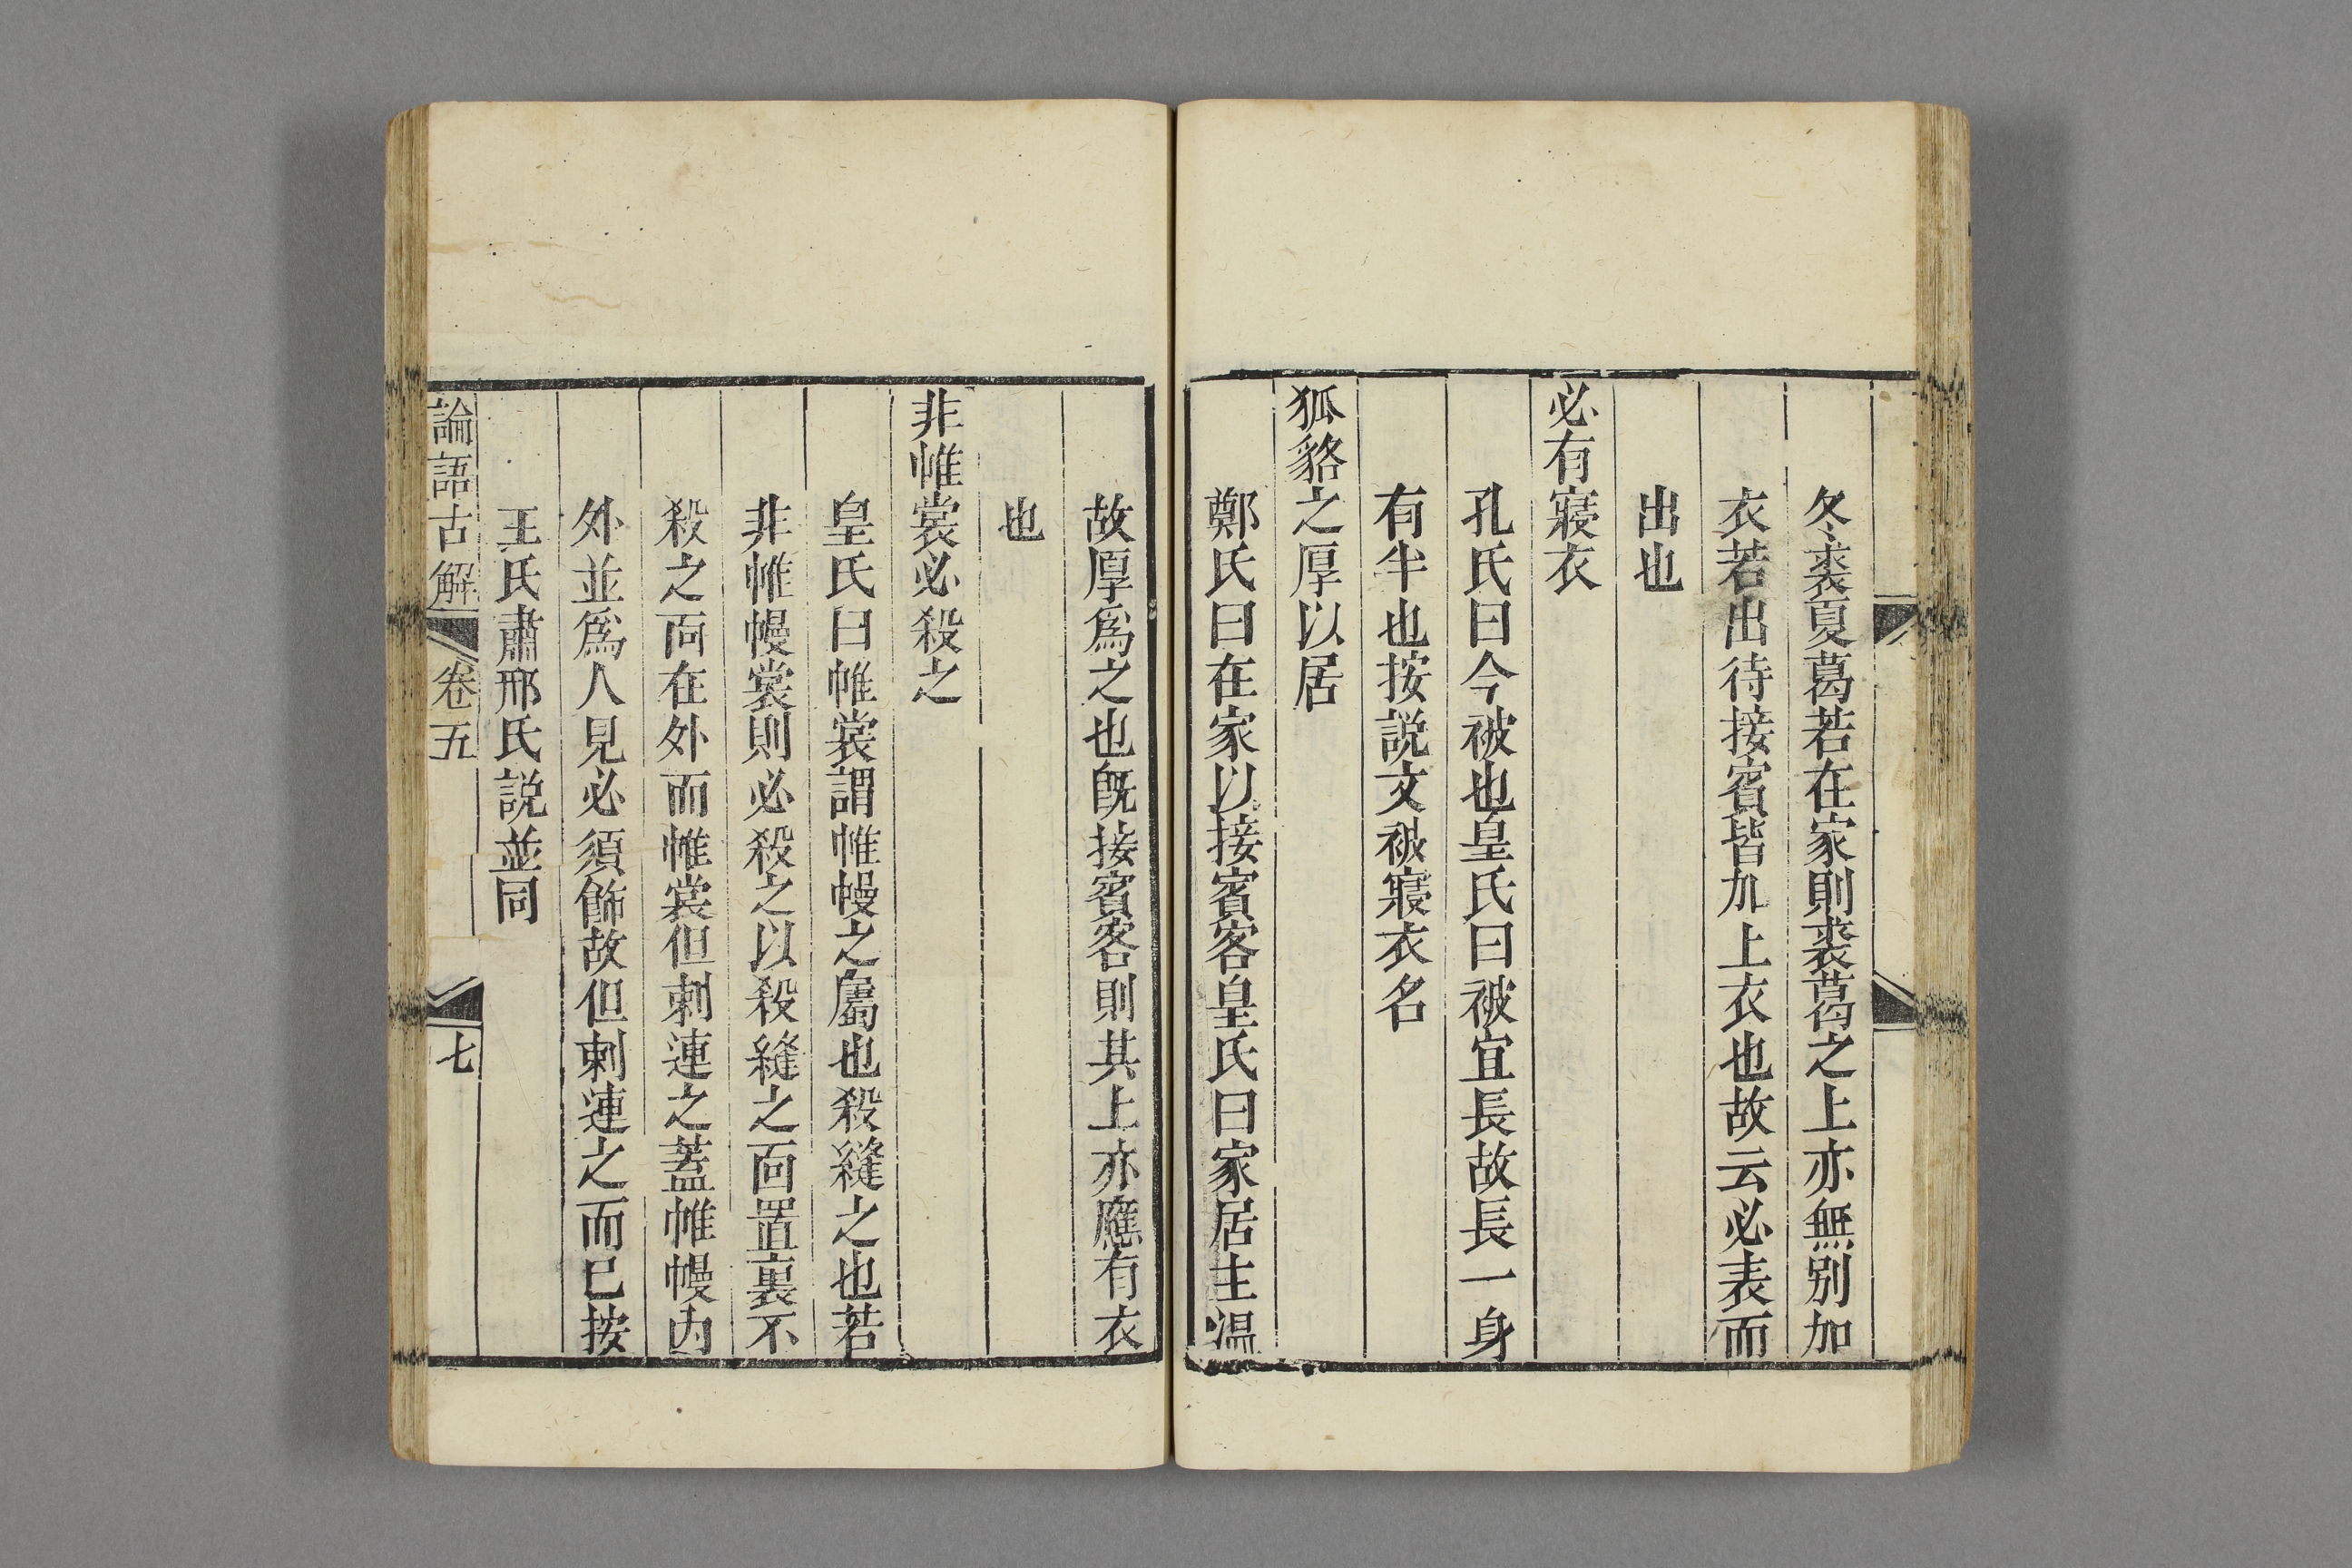 冬裘夏葛若在家則裘葛之上亦無别加
衣若出待接賓皆加上衣也故云必表而
出也
必有寢衣
孔氏曰今被也皇氏曰被宜長故長一身
有半也按説文被寢衣名
狐貉之厚以居
鄭氏曰在家以接賓客皇氏曰家居主温
故厚爲之也旣接賓客則其上亦應有衣
也
非帷裳必殺之
皇氏曰帷裳謂帷幔之屬也殺縫之也若
非帷幔裳則必殺之以殺縫之靣置裏不
殺之靣在外而帷裳但刺連之蓋帷幔内
外並爲人見必須飾故但刺連之而已按
王氏肅邢氏説並同
論語古解 卷五 七